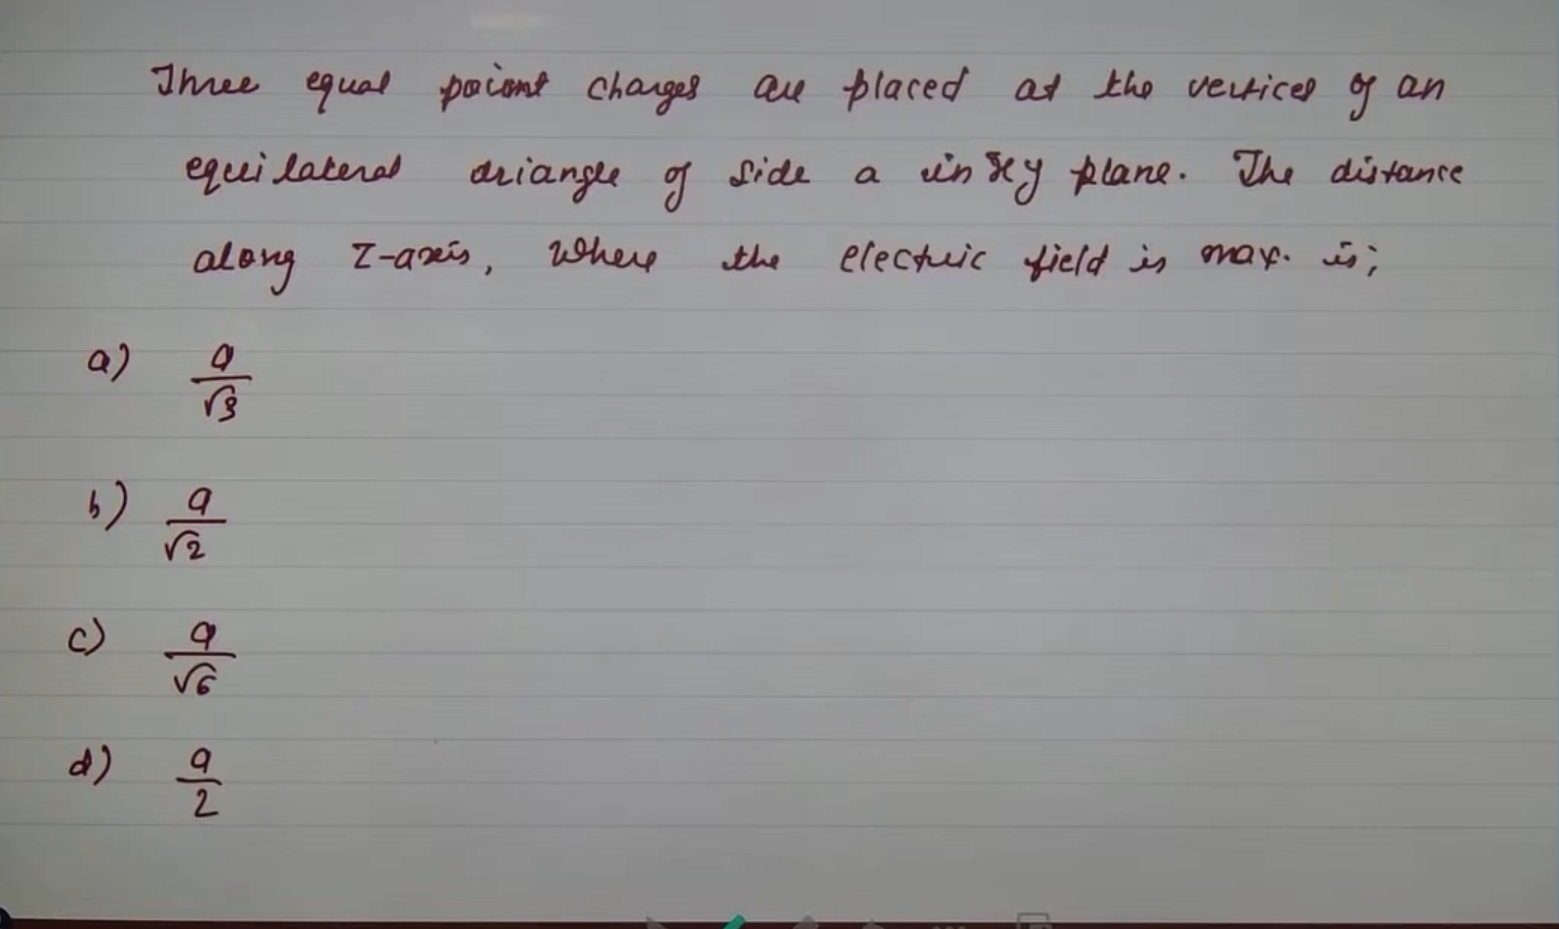 Three equal point charges are placed at the vertices of an
equilateral triangle of side a in xy plane. The distance
along Z-axis, where the electric field is max. is;
a) a/√3
b) a/√2
c) a/√6
d) a/2